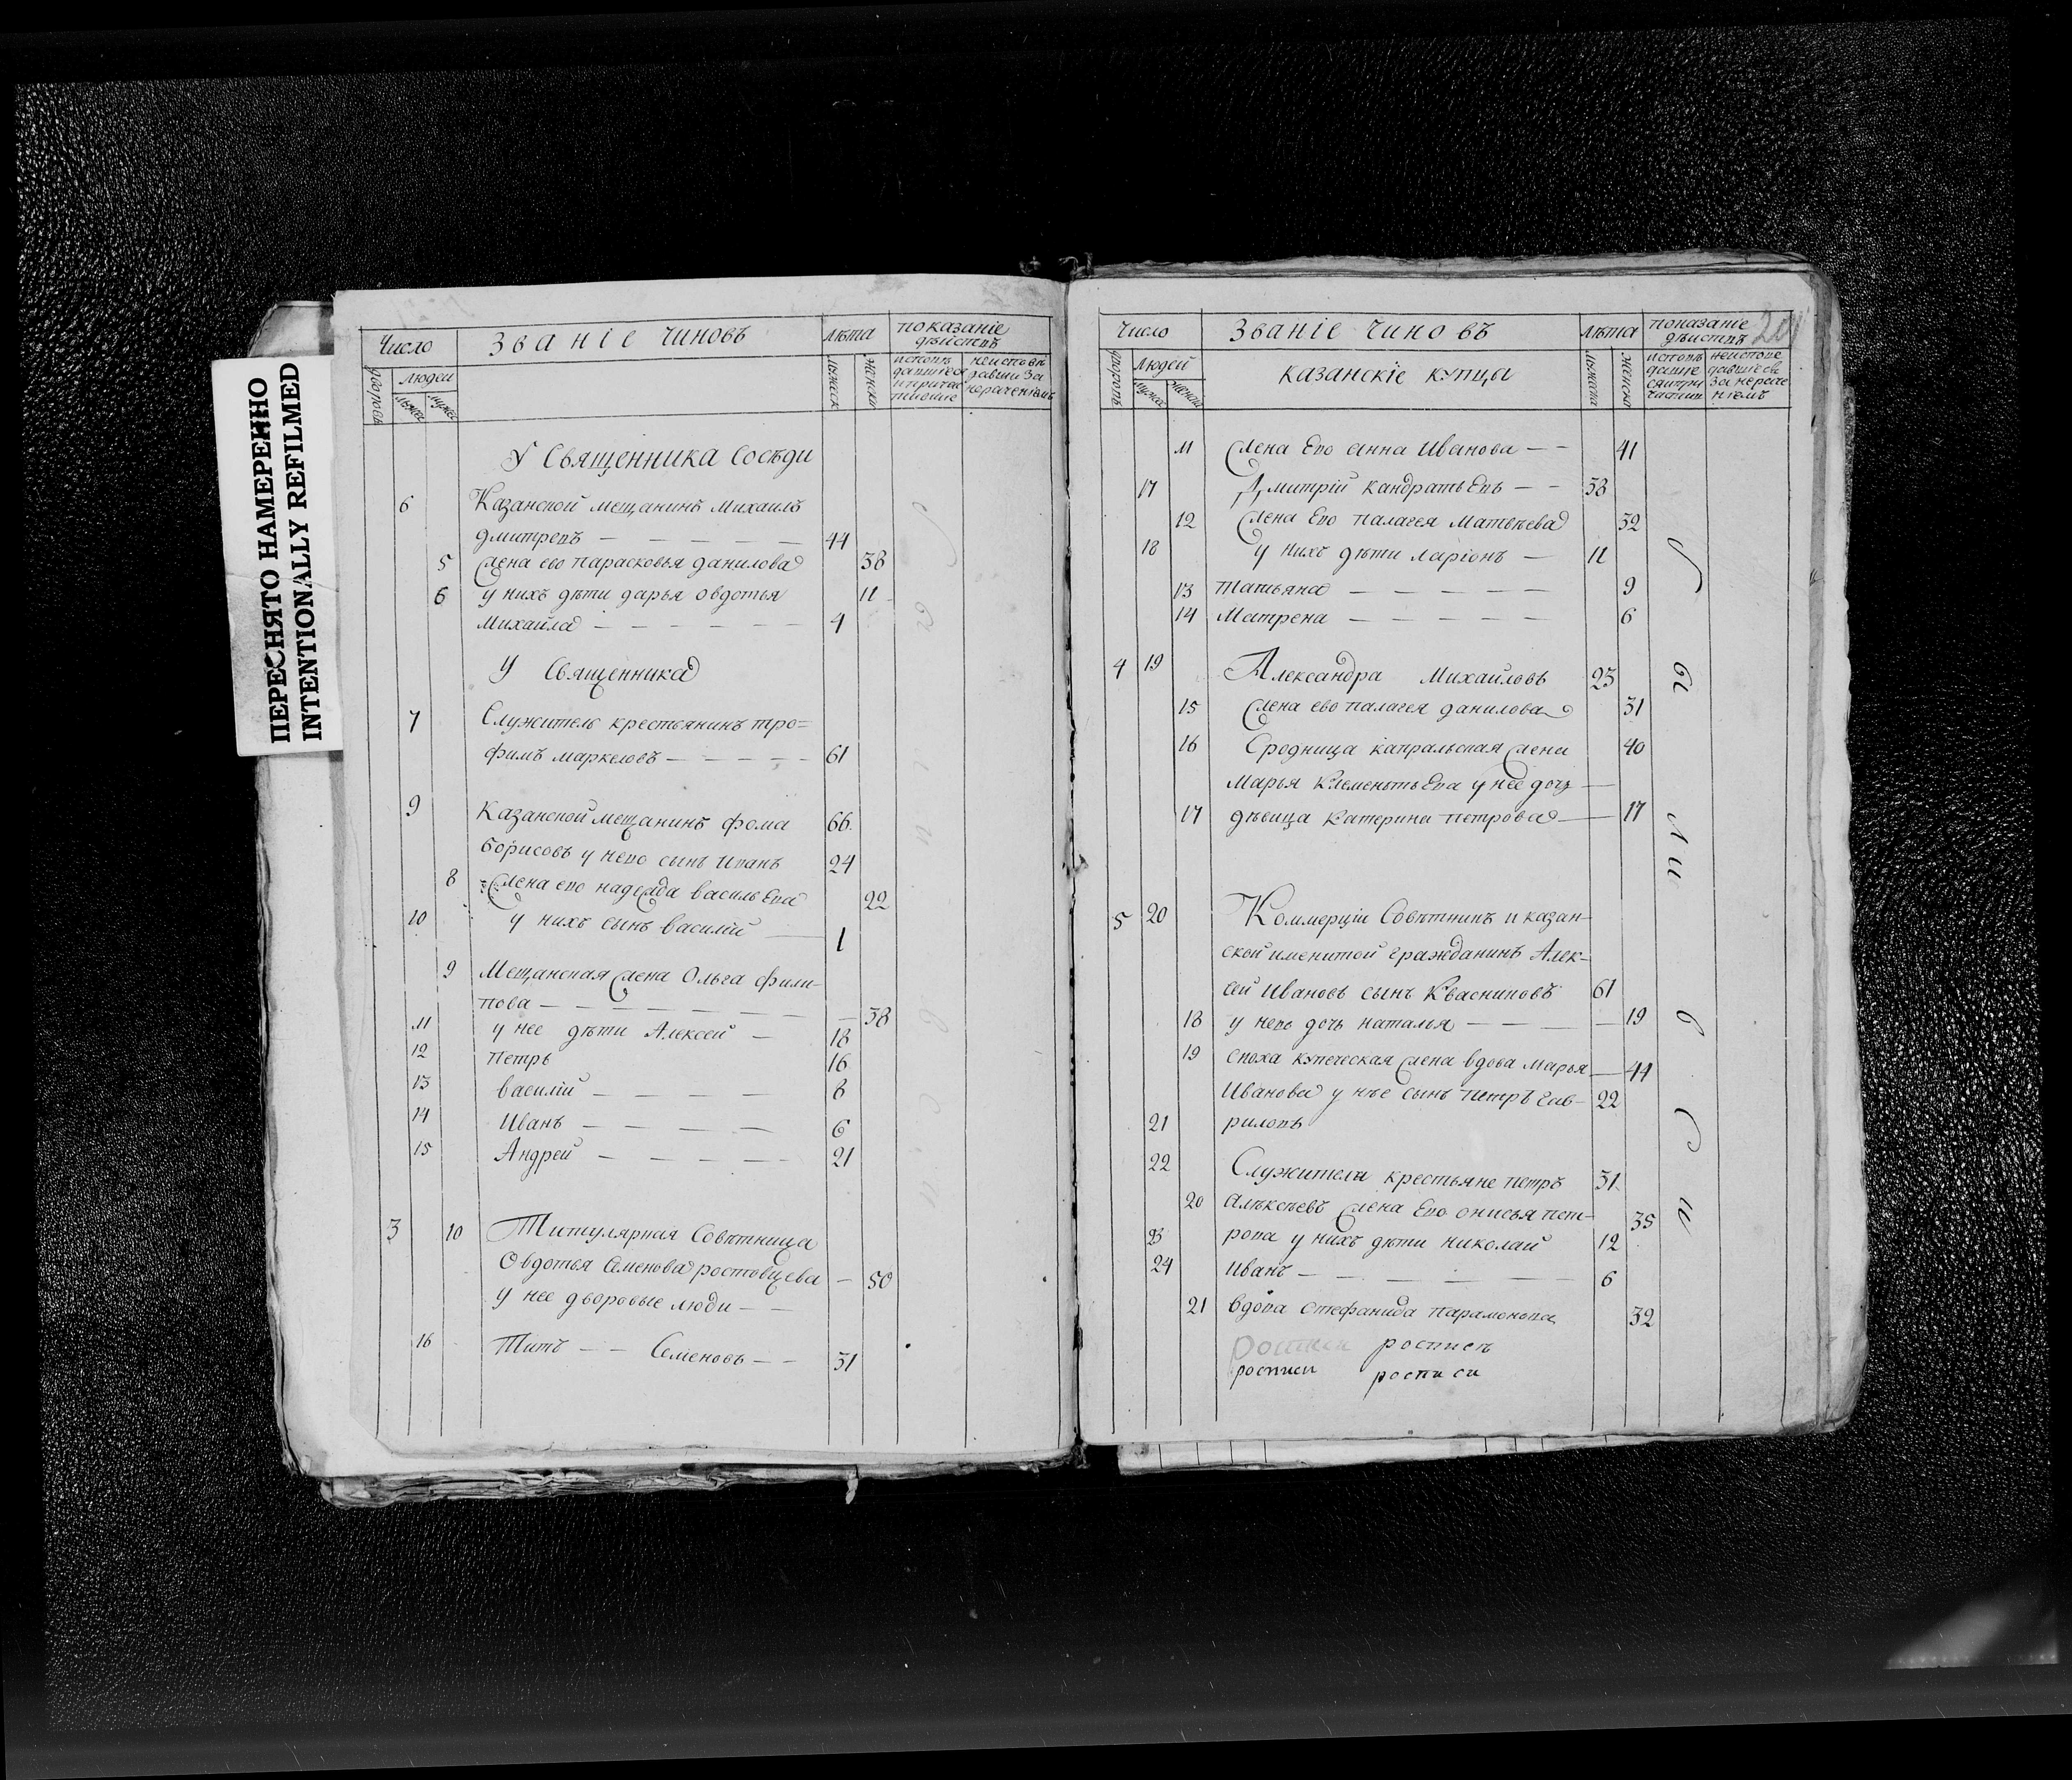 ПЕРЕСНЯТО НАМЕРЕННО
INTENTIONALLY REFILMED
Число Званіе чиновъ лѣта показаніе дѣйствъ
людей
У Священника Сосѣди
6 Казанской мещанинъ Михаилъ
дмитревъ — — — — — 44
5 Жена ево парасковья данилова 38
6 у нихъ дѣти дарья овдотья 11
Михайла — — — — — — 4
У Священника
7 Служитель крестьянинъ тро=
фимъ маркеловъ — — — — — 61
9 Казанской мещанинъ фома 66
борисовъ у него сынъ иванъ 24
8 Жена его надежда васильева 22
10 у нихъ сынъ василий 1
9 Мещанская жена Ольга фили-
пова — — — — — — — 38
11 у нее дѣти Алексей — 18
12 петръ 16
13 василий — — — — 8
14 Иванъ — — — — 6
15 Андрей — — — — — 21
3 10 Титулярная Совѣтница
Овдотья Семенова ростовцева — 50
у нее дворовые люди — —
16 Титъ — — Семеновъ — — 31
Число Званіе чиновъ лѣта показаніе дѣйствъ 201
людей казанскіе купцы
11 Жена Его анна Иванова — — 41
17 Дмитрій кандратьевъ — — 38
12 Жена Его палагея Матвѣева 32
18 у нихъ дѣти ларіонъ — 11
13 Татьяна — — — — — 9
14 Матрена — — — — — 6
4 19 Александра Михайловъ 23
15 Жена ево палагея данилова 31
16 Сродница капральская жена 40
марья клементьева у нее дочь —
17 дѣвица катерина петрова — 17
5 20 Коммерціи Совѣтникъ и казан-
ской именитой гражданинъ Алек-
сей Ивановъ сынъ Квасниковъ 61
18 у него дочь наталья — — — — 19
19 сноха купеческая жена вдова марья — 44
Иванова у нѣе сынъ петръ гав- 22
21 риловъ
22 Служители крестьяне петръ 31
20 алѣксѣевъ жена Его онисья пет- 35
23 рова у нихъ дѣти николай 12
24 иванъ — — — — — 6
21 вдова стефанида парамонова 32
росписи роспись
росписи росписи